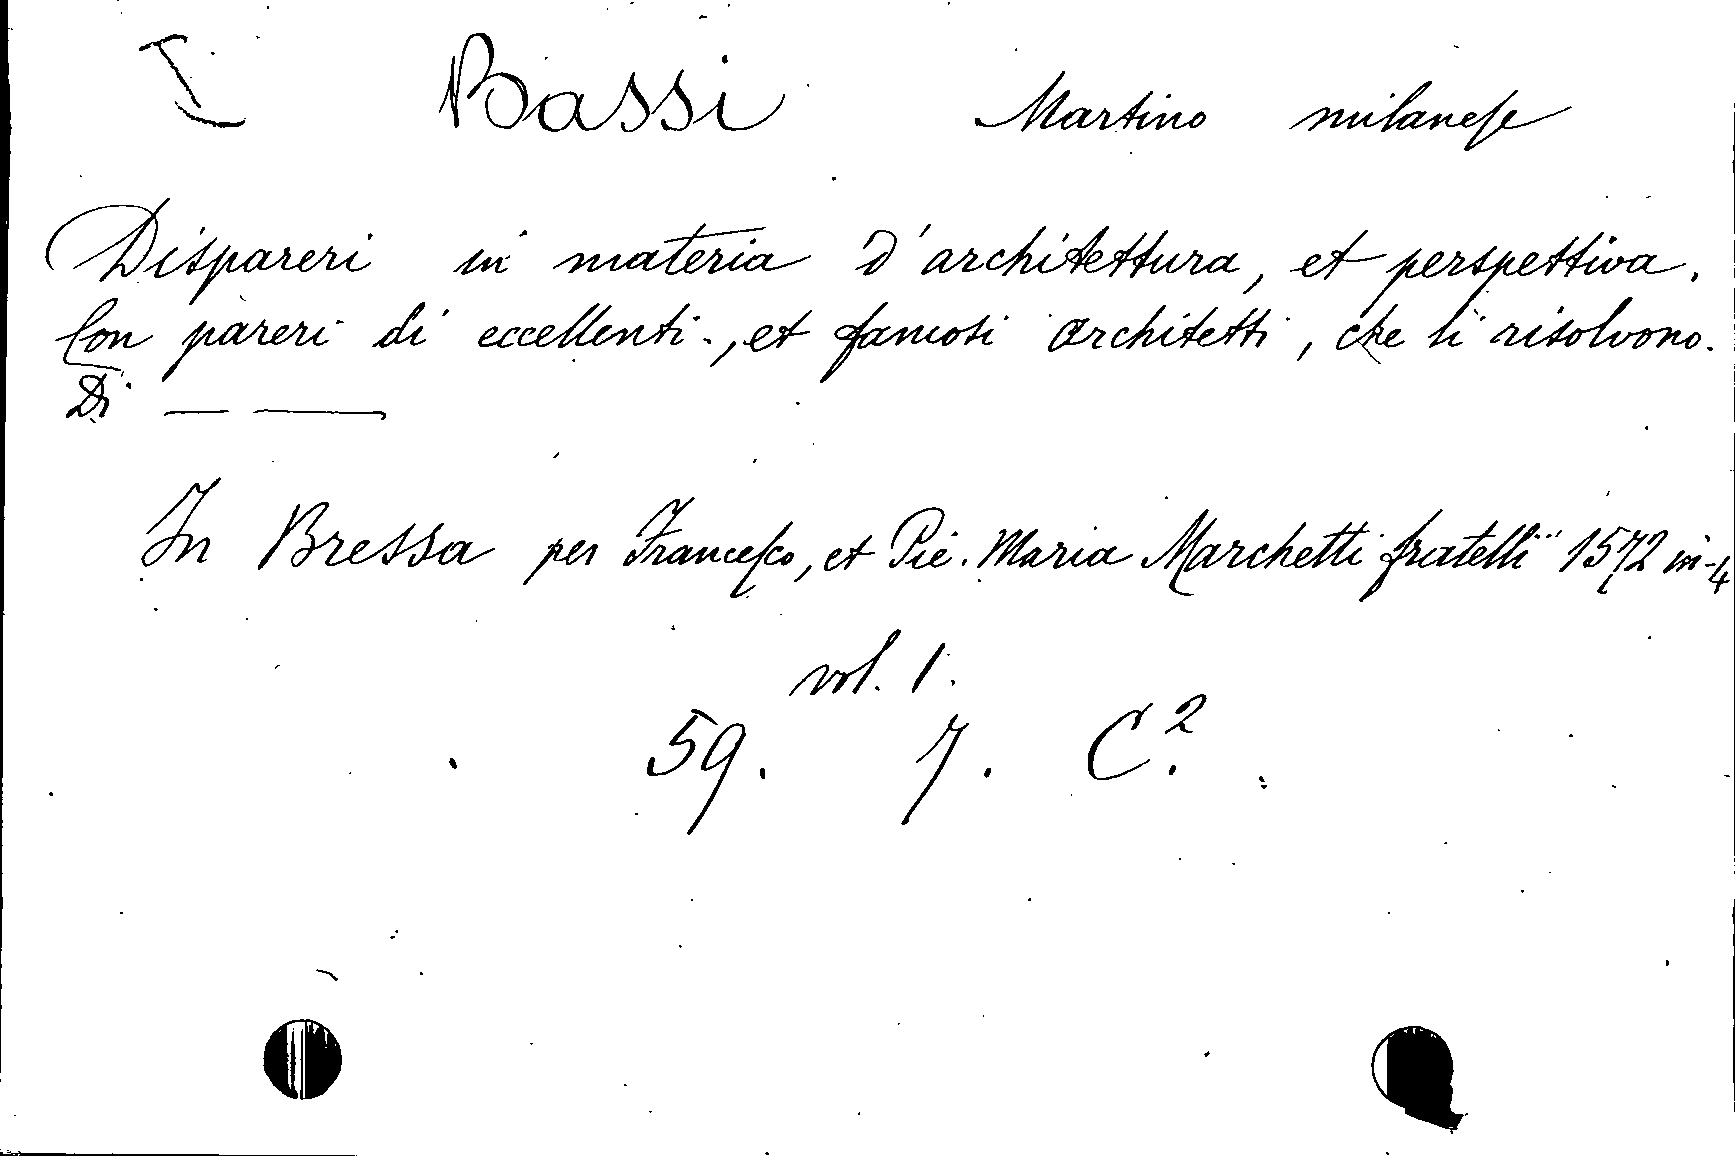 I Bassi Martino milanese
Dispareri in materia d'architettura, et perspettiva.
Con pareri di eccellenti, et famosi architetti, che li risolvono.
Di — —
In Bressa per Francesco, et Pie. Maria Marchetti fratelli 1572 in-4
vol. 1.
59. 7. C².